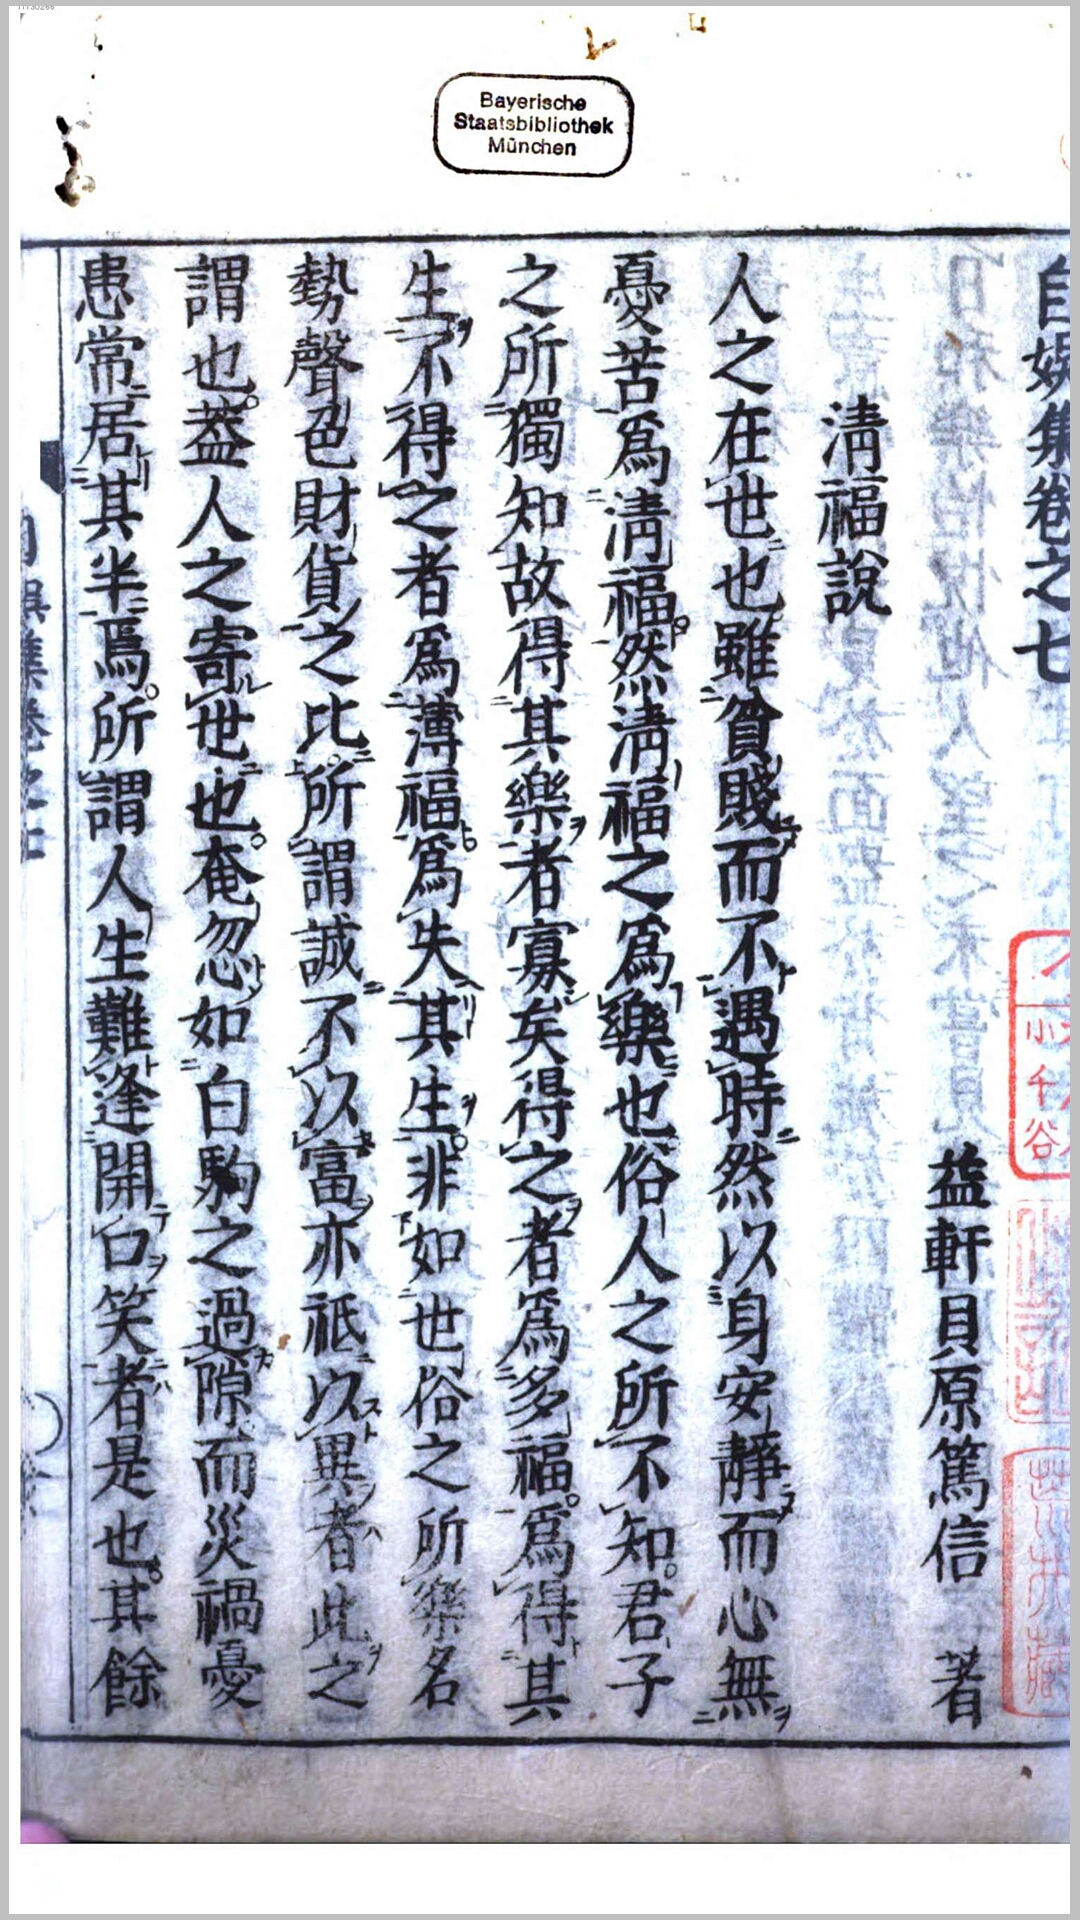 Bayerische
Staatsbibliothek
München
自娯集卷之七
益軒貝原篤信 著
清福說
人之在世也雖貧賤而不遇時然以身安靜而心無
憂苦爲清福然清福之爲樂也俗人之所不知君子
之所獨知故得其樂者寡矣得之者爲多福爲得其
生不得之者爲薄福爲失其生非如世俗之所樂名
勢聲色財貨之比所謂誠不以富亦祗以異者此之
謂也蓋人之寄世也奄忽如白駒之過隙而災禍憂
患常居其半焉所謂人生難逢開口笑者是也其餘